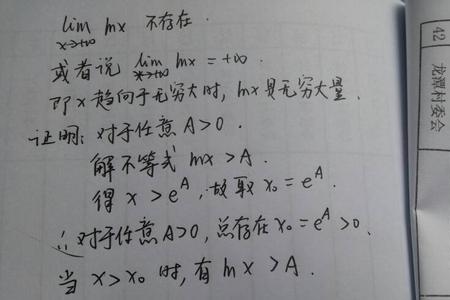 lim ln x 不存在.
x→+∞
或者说 lim ln x = +∞.
x→+∞
即 x 趋向于无穷大时, ln x 是无穷大量.
证明: 对于任意 A>0.
解不等式 ln x > A.
得 x > e^A, 故取 x₀ = e^A.
∴ 对于任意 A>0, 总存在 x₀ = e^A > 0.
当 x > x₀ 时, 有 ln x > A.
42
龙潭村委会